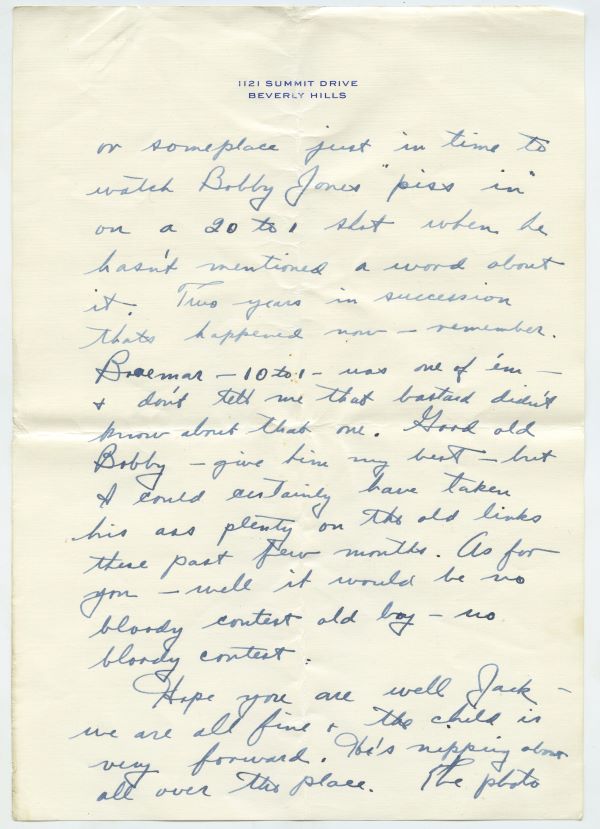 1121 SUMMIT DRIVE
BEVERLY HILLS
or someplace just in time to
watch Bobby Jones "piss in"
on a 20 to 1 shot when he
hasn't mentioned a word about
it. Two years in succession
thats happened now – remember.
Braemar – 10 to 1 – was one of 'em –
& don't tell me that bastard didn't
know about that one. Good old
Bobby – give him my best – but
I could certainly have taken
his ass plenty on the old links
these past few months. As for
you – well it would be no
bloody contest old boy – no
bloody contest.
Hope you are well Jack –
we are all fine & the child is
very forward. He's nipping about
all over the place. The photo